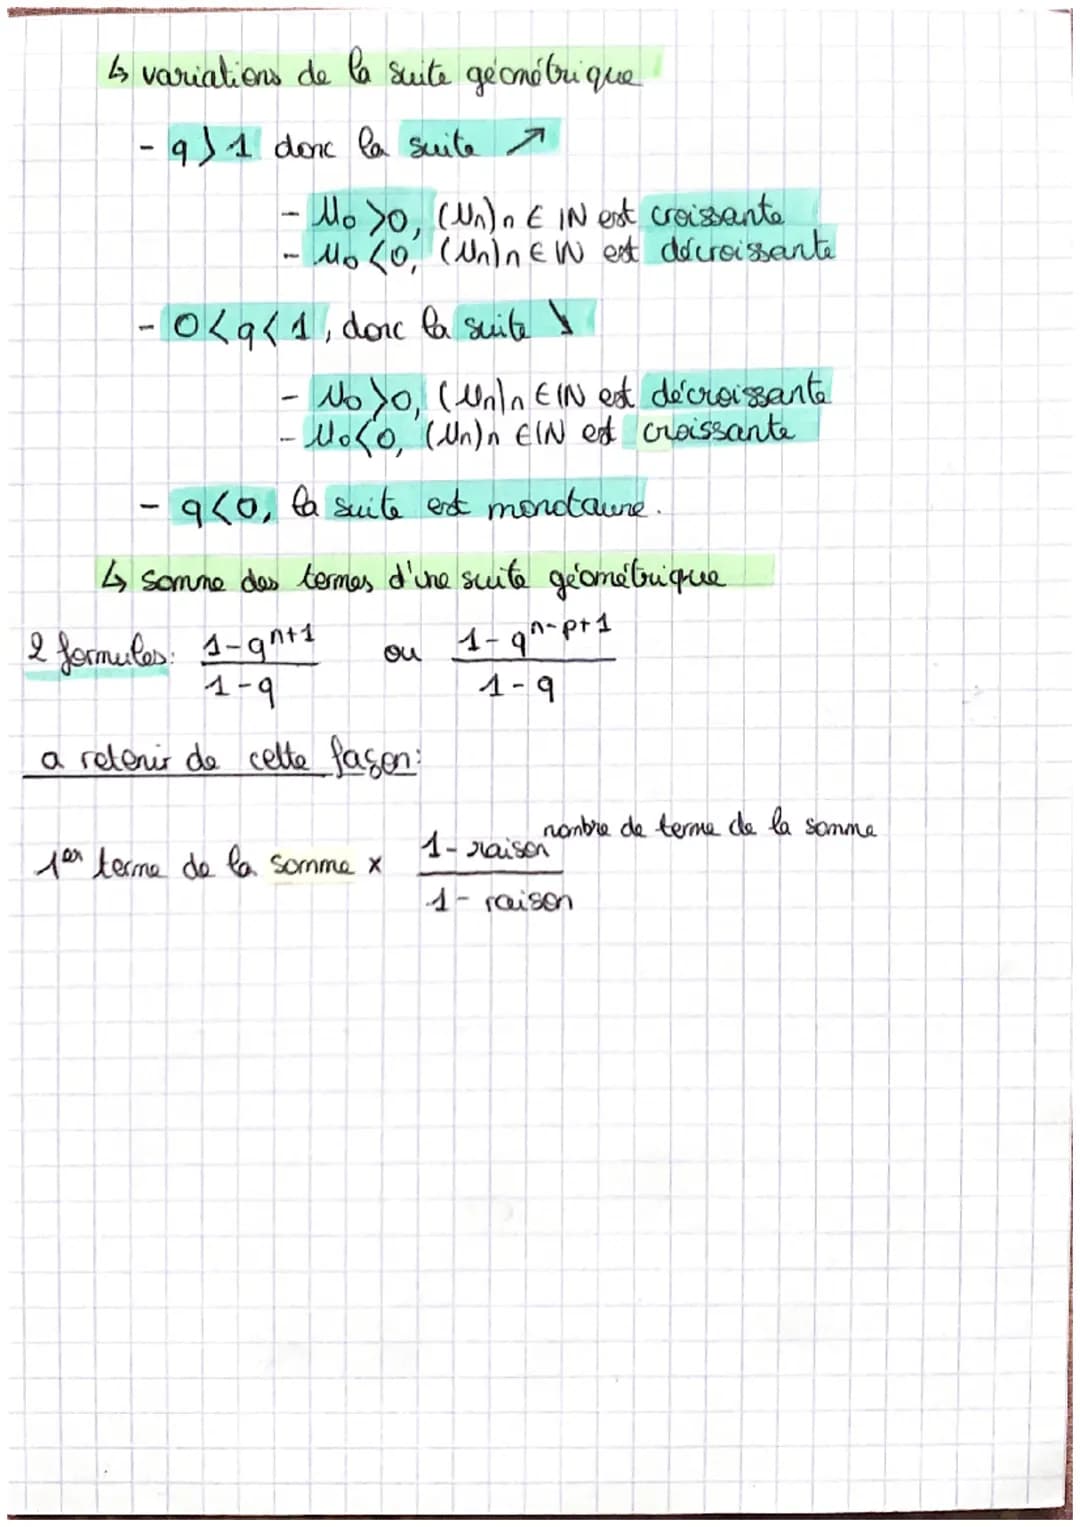 ↳ variations de la suite géométrique
- q > 1 donc la suite ↗
- U₀ > 0, (Un) n ∈ IN est croissante
- U₀ < 0, (Un) n ∈ IN est décroissante
- 0 < q < 1, donc la suite ↘
- U₀ > 0, (Un) n ∈ IN est décroissante
- U₀ < 0, (Un) n ∈ IN est croissante
- q < 0, la suite est monotaure.
↳ somme des termes d'une suite géométrique
2 formules: (1 - q^(n+1)) / (1 - q) ou (1 - q^(n-p+1)) / (1 - q)
a retenir de cette façon:
1er terme de la somme x (1 - raison^(nombre de terme de la somme)) / (1 - raison)